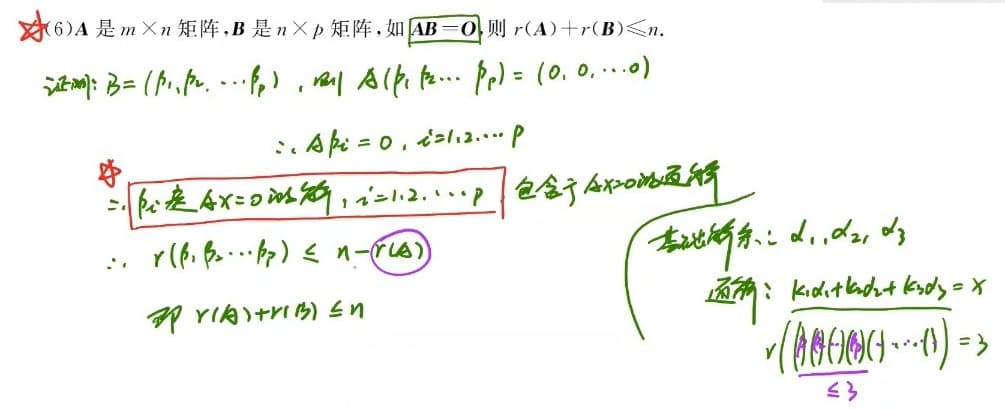 (6)A 是 m×n 矩阵,B 是 n×p 矩阵,如 AB=O,则 r(A)+r(B)≤n.
证明: B=(β₁,β₂,…βₚ), 则 A(β₁ β₂… βₚ)=(0,0,…0)
∴ Aβᵢ=0, i=1,2.…p
∴ βᵢ是 AX=0的解, i=1,2.…p 包含于 AX=0的通解
∴ r(β₁ β₂…βₚ) ≤ n-r(A)
即 r(A)+r(B)≤n
基础解系: α₁,α₂,α₃
通解: k₁α₁+k₂α₂+k₃α₃=x
=3
≤3